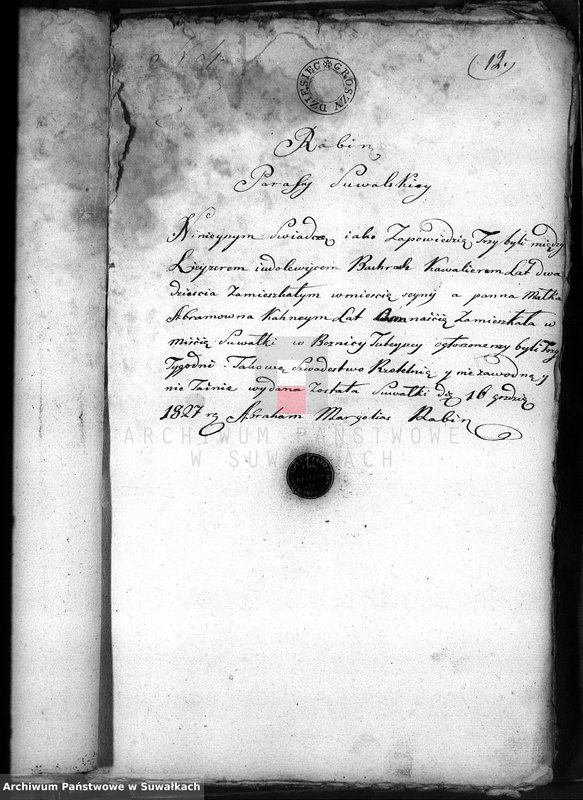 (12.)
DZIESIĘC GROSZY
Rabin
Parafiy Suwalskiey
Ninieyszym Swiadcze iako Zapowiedzie Trzy byli między
Leyzerem iudolewijcem Bachrach Kawalierem Lat dwa
dzieścia Zamieszkałym w mieście seyny a panna Matka
Abramowna Kahneym Lat Zamieszkała w
mieście Suwałki w Boznicy Tuteyszey ogłoszonemy byli Trzy
Tygodni Takowe Swadectwo Rzetelnie y niezawodne y
nie Taine wydana Została Suwałki d 16
1827 r Abraham Margolias Rabin
ARCHIWUM PAŃSTWOWE
W SUWAŁKACH
Archiwum Państwowe w Suwałkach